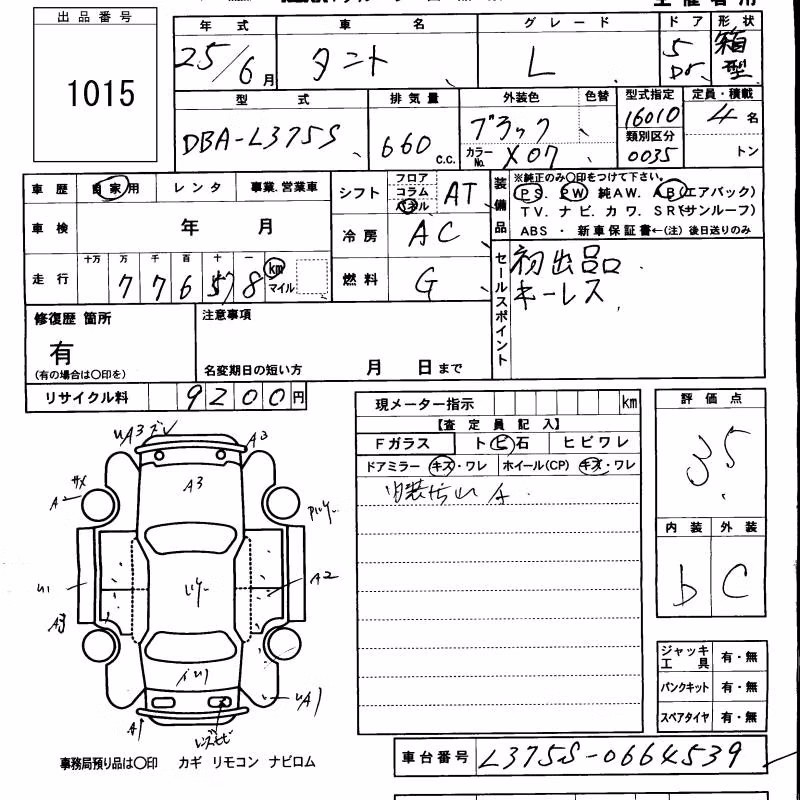 出品番号
1015
年式 車名 グレード ドア 形状
25/6月 タント L 5Dr. 箱型
型式 排気量 外装色 色替 型式指定 定員・積載
DBA-L375S 660 c.c. ブラック 16010 4名
カラーNo. X07 類別区分 0035 トン
車歴 自家用 レンタ 事業.営業車
車検 年 月
走行 十万 万 千 百 十 一
77658 km マイル
シフト フロア コラム パネル AT
冷房 AC
燃料 G
装備品
※純正のみ○印をつけて下さい。
PS. PW 純AW. AB(エアバック)
TV. ナビ. カワ. SR(サンルーフ)
ABS ・ 新車保証書←(注) 後日送りのみ
セールスポイント
初出品
キーレス
修復歴 箇所
有
(有の場合は○印を)
注意事項
名変期日の短い方 月 日まで
リサイクル料 9200円
現メーター指示 km
【査定員記入】
Fガラス トビ石 ヒビワレ
ドアミラー キズ・ワレ ホイール(CP) キズ・ワレ
評価点
3.5
内装 外装
b C
A3
A3
A2
A1
ジャッキ工具 有・無
パンクキット 有・無
スペアタイヤ 有・無
事務局預り品は○印 カギ リモコン ナビロム
車台番号 L375S-0664539